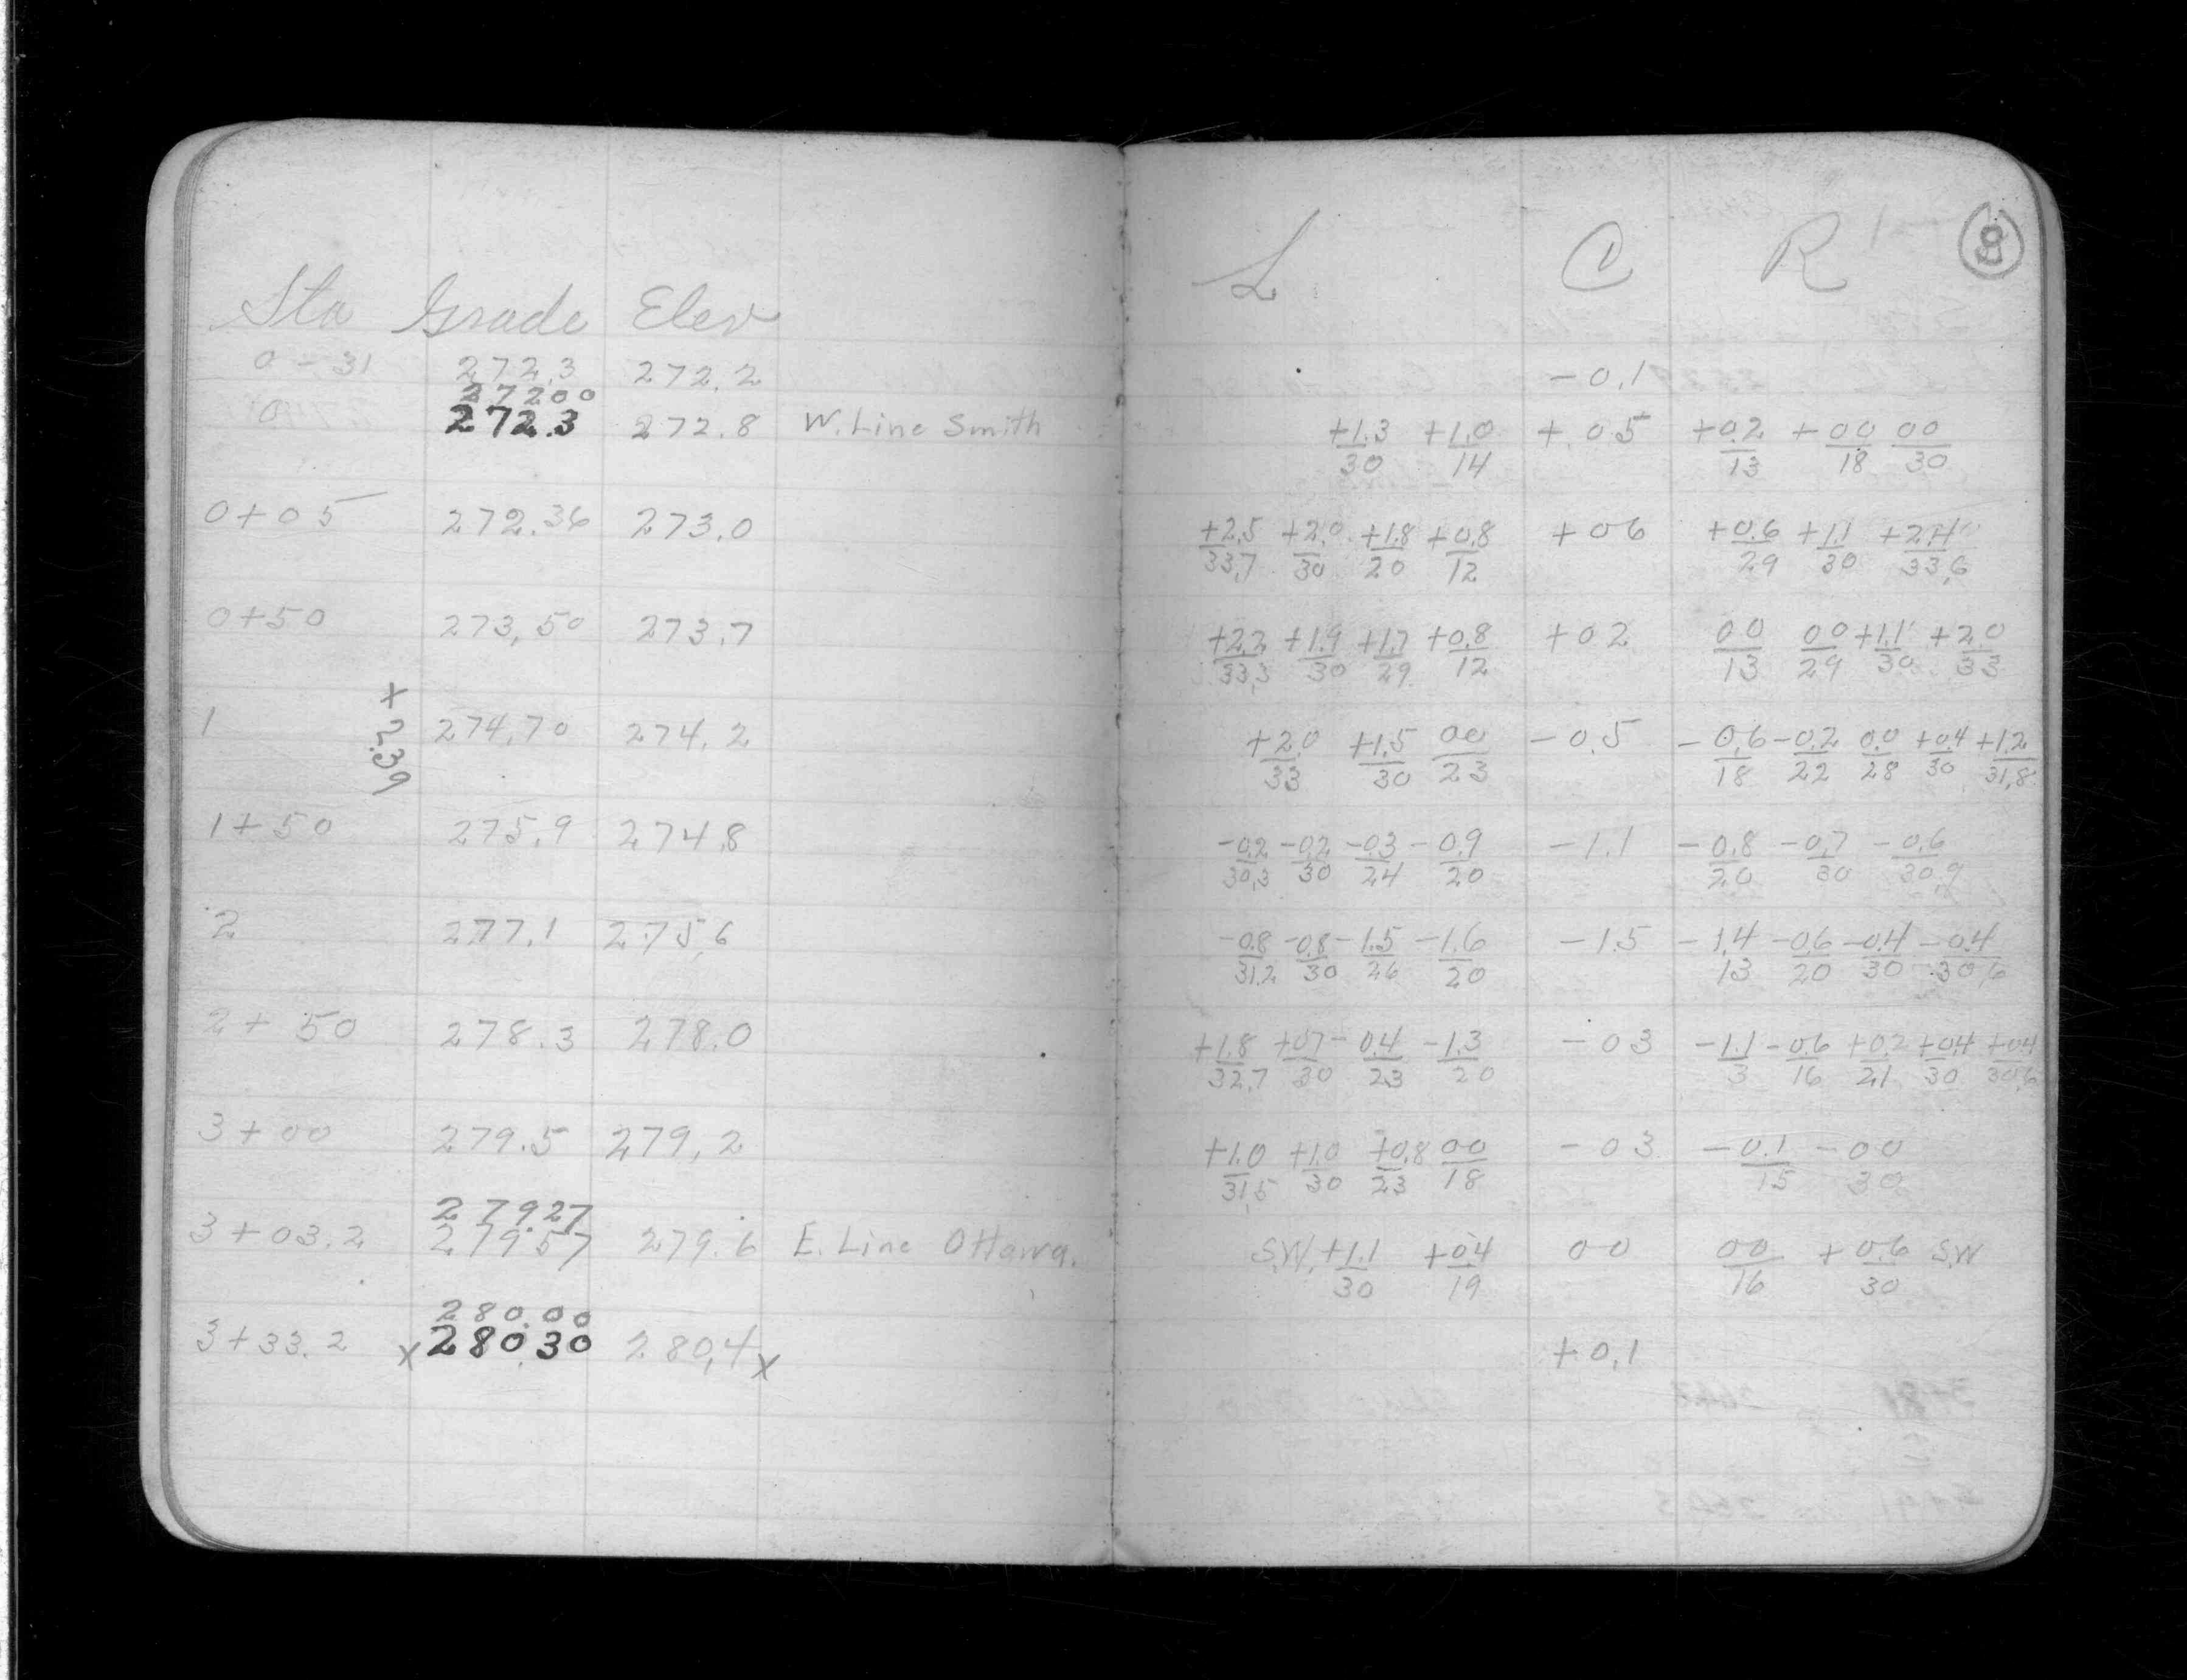 Sta Grade Elev
0 - 31 272.3 272.2
27200
0 272.3 272.8 W. Line Smith
0+05 272.36 273.0
0+50 273,50 273.7
1 274,70 274,2
+2.39
1+50 275,9 274,8
2 277,1 275,6
2+50 278.3 278.0
3+00 279.5 279,2
279.27
3+03.2 279.57 279.6 E. Line Ottawa.
280.00
3+33.2 x 280.30 280,4 x
L C R 8
-0,1
+1.3/30 +1.0/14 +0.5 +0.2/13 +00/18 00/30
+2.5/33,7 +2.0/30 +1.8/20 +0.8/12 +06 +0.6/29 +1.1/30 +2.4/33,6
+2.2/33,3 +1.9/30 +1.7/29 +0.8/12 +02 00/13 00/29 +1.1/30 +2.0/33
+2.0/33 +1.5/30 00/23 -0.5 -0.6/18 -0.2/22 0.0/28 +0.4/30 +1.2/31,8
-0.2/30,3 -0.2/30 -0.3/24 -0.9/20 -1.1 -0.8/20 -0.7/30 -0.6/30,9
-0.8/31.2 -0.8/30 -1.5/26 -1.6/20 -1.5 -1.4/13 -0.6/20 -0.4/30 -0.4/30 6
+1.8/32,7 +07/30 -0.4/23 -1.3/20 -03 -1.1/3 -0.6/16 +0.2/21 +0.4/30 +0.4/30,6
+1.0/31,5 +1.0/30 +0.8/23 00/18 -03 -0.1/15 -00/30
S.W. +1.1/30 +0.4/19 00 00/16 +0.6/30 S.W
+0,1